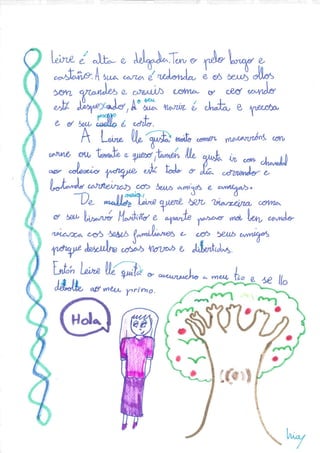 Leire é alta e delgada. Ten o pelo longo e
castaño. A sua cara é redonda e os seus ollos
son grandes e azuis coma o ceo cando
está despexado. A seu nariz é chata e pecosa
e o seu pescozo é corto.
A Leire lle gusta moito comer macarróns con
carne ou tomate e queixo, tamén lle gusta ir con chandal
ao colexio porque está todo o día correndo e
botando carreiras cos seus amigos e amigas.
De maior Leire quere ser viaxeira coma
o seu bisavó Martiño e aparte pasao moi ben, cando
viaxa cos seus familiares e cos seus amigos
porque descubre cosas novas e divertidas.
Entón Leire lle quita o cucurucho a meu tío e se llo
devolve ao meu primo.
Hola